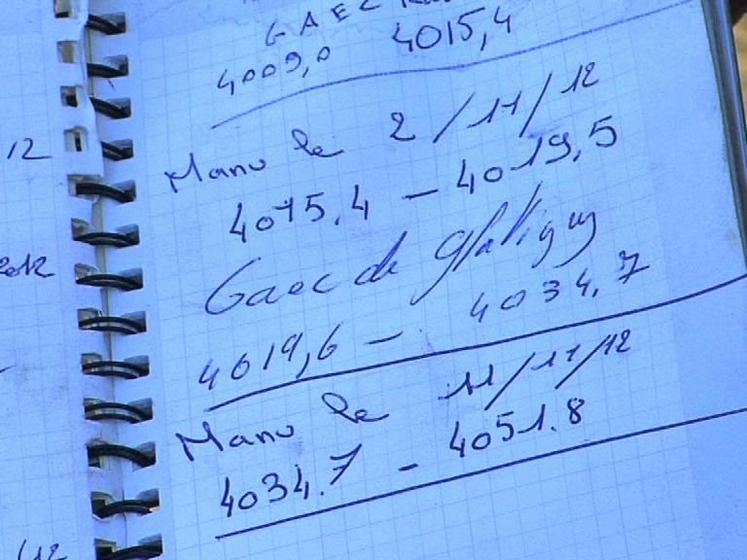 GAEC
4009,0 4015,4
12
Manu le 2/11/12
4015.4 - 4019,5
2012
Gaec de Glatigny
4019,6 - 4034,7
Manu le 11/11/12
4034.7 - 4051.8
/12